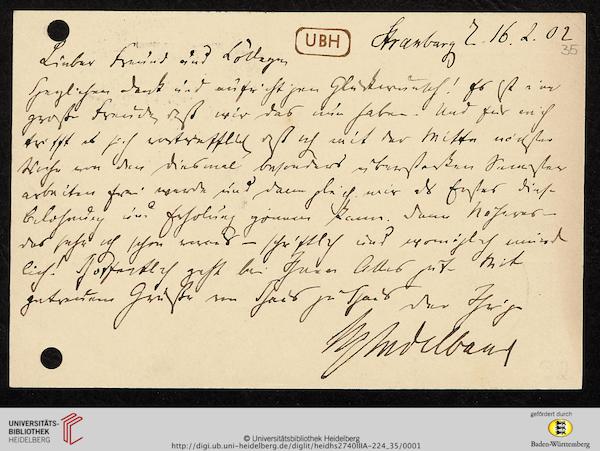 UBH
Strassburg 16. 2. 02
35
Lieber Freund und College,
herzlichen Dank und aufrichtigen Glückwunsch! Es ist eine
große Freude, daß wir das nun haben. Und für mich
trifft es sich vortrefflich, daß ich mit der Mitte nächster
Woche von dem diesmal besonders überstarken Semester
arbeiten frei werde und dann gleich mir als Erstes diese
Belohnung und Erholung gönnen kann. Dann Näheres –
das sehe ich schon voraus – schriftlich und womöglich münd
lich! Hoffentlich geht bei Ihnen Alles gut. Mit
getreuem Gruße von Haus zu Haus der Ihrige
Windelband
UNIVERSITÄTS-
BIBLIOTHEK
HEIDELBERG
© Universitätsbibliothek Heidelberg
http://digi.ub.uni-heidelberg.de/diglit/heidhs2740IIIA-224_35/0001
gefördert durch
Baden-Württemberg